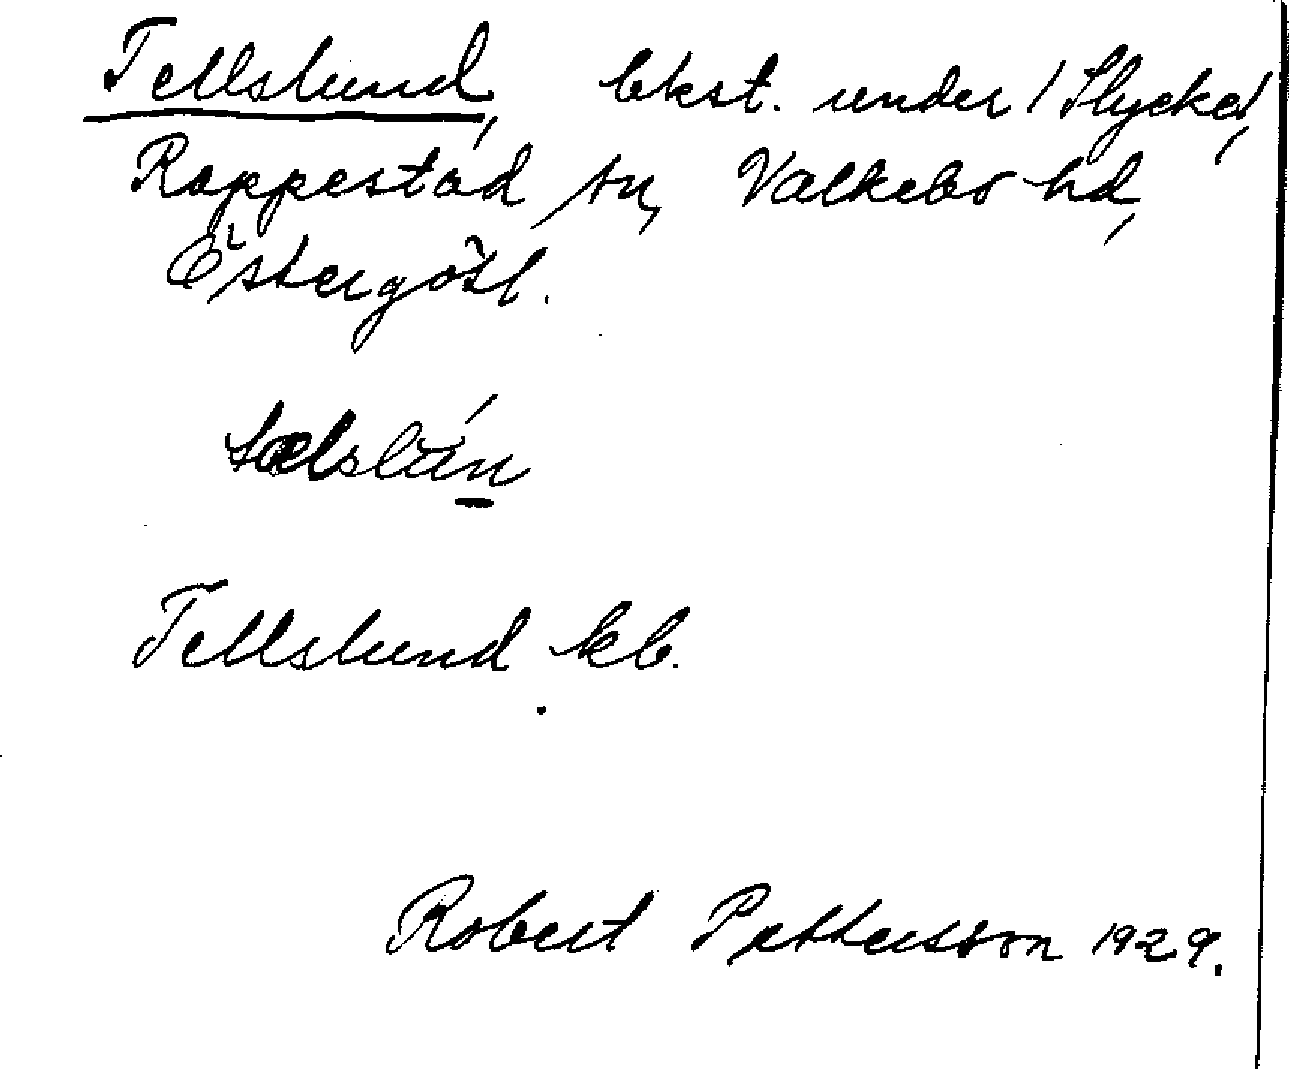 Tellslund, bkst. under 1 Slycke,
Rappestad sn, Valkebo hd,
Östergötl.
Tellslund kb.
Robert Pettersson 1929.